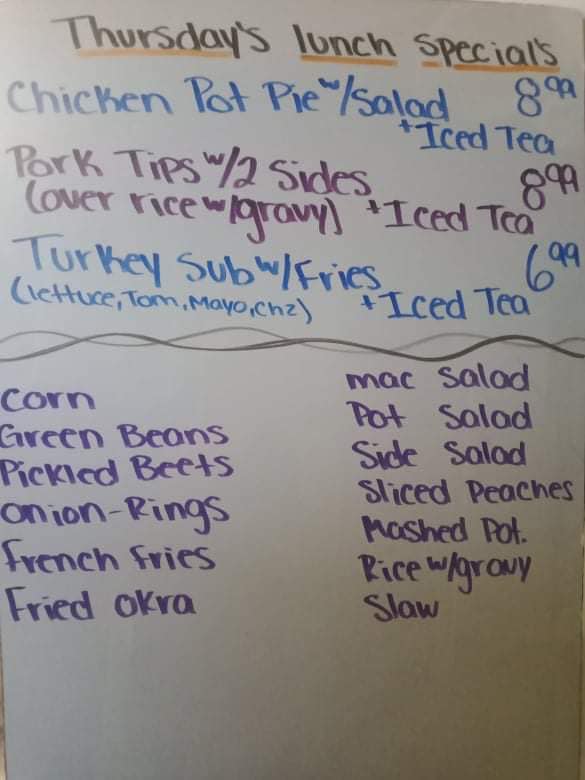 Thursday's lunch Special's
Chicken Pot Pie w/Salad 8.99
+Iced Tea
Pork Tips w/2 Sides 8.99
(over rice w/gravy) +Iced Tea
Turkey Sub w/Fries 6.99
(lettuce, Tom, Mayo, Chz) +Iced Tea
Corn
Green Beans
Pickled Beets
Onion-Rings
French Fries
Fried Okra
mac Salad
Pot Salad
Side Salad
Sliced Peaches
Mashed Pot.
Rice w/gravy
Slaw